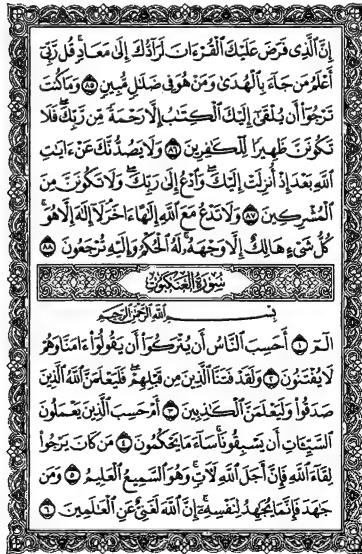 إِنَّ ٱلَّذِى فَرَضَ عَلَيْكَ ٱلْقُرْءَانَ لَرَآدُّكَ إِلَىٰ مَعَادٍ ۚ قُل رَّبِّىٓ
أَعْلَمُ مَن جَآءَ بِٱلْهُدَىٰ وَمَنْ هُوَ فِى ضَلَٰلٍ مُّبِينٍ ٨٥ وَمَا كُنتَ
تَرْجُوٓا۟ أَن يُلْقَىٰٓ إِلَيْكَ ٱلْكِتَٰبُ إِلَّا رَحْمَةً مِّن رَّبِّكَ ۖ فَلَا
تَكُونَنَّ ظَهِيرًا لِّلْكَٰفِرِينَ ٨٦ وَلَا يَصُدُّنَّكَ عَنْ ءَايَٰتِ
ٱللَّهِ بَعْدَ إِذْ أُنزِلَتْ إِلَيْكَ ۖ وَٱدْعُ إِلَىٰ رَبِّكَ ۖ وَلَا تَكُونَنَّ مِنَ
ٱلْمُشْرِكِينَ ٨٧ وَلَا تَدْعُ مَعَ ٱللَّهِ إِلَٰهًا ءَاخَرَ ۘ لَآ إِلَٰهَ إِلَّا هُوَ ۚ
كُلُّ شَىْءٍ هَالِكٌ إِلَّا وَجْهَهُۥ ۚ لَهُ ٱلْحُكْمُ وَإِلَيْهِ تُرْجَعُونَ ٨٨
سُورَةُ ٱلْعَنكَبُوتِ
بِسْمِ ٱللَّهِ ٱلرَّحْمَٰنِ ٱلرَّحِيمِ
الٓمٓ ١ أَحَسِبَ ٱلنَّاسُ أَن يُتْرَكُوٓا۟ أَن يَقُولُوٓا۟ ءَامَنَّا وَهُمْ
لَا يُفْتَنُونَ ٢ وَلَقَدْ فَتَنَّا ٱلَّذِينَ مِن قَبْلِهِمْ ۖ فَلَيَعْلَمَنَّ ٱللَّهُ ٱلَّذِينَ
صَدَقُوا۟ وَلَيَعْلَمَنَّ ٱلْكَٰذِبِينَ ٣ أَمْ حَسِبَ ٱلَّذِينَ يَعْمَلُونَ
ٱلسَّيِّـَٔاتِ أَن يَسْبِقُونَا ۚ سَآءَ مَا يَحْكُمُونَ ٤ مَن كَانَ يَرْجُوا۟
لِقَآءَ ٱللَّهِ فَإِنَّ أَجَلَ ٱللَّهِ لَءَاتٍ ۚ وَهُوَ ٱلسَّمِيعُ ٱلْعَلِيمُ ٥ وَمَن
جَٰهَدَ فَإِنَّمَا يُجَٰهِدُ لِنَفْسِهِۦٓ ۚ إِنَّ ٱللَّهَ لَغَنِىٌّ عَنِ ٱلْعَٰلَمِينَ ٦